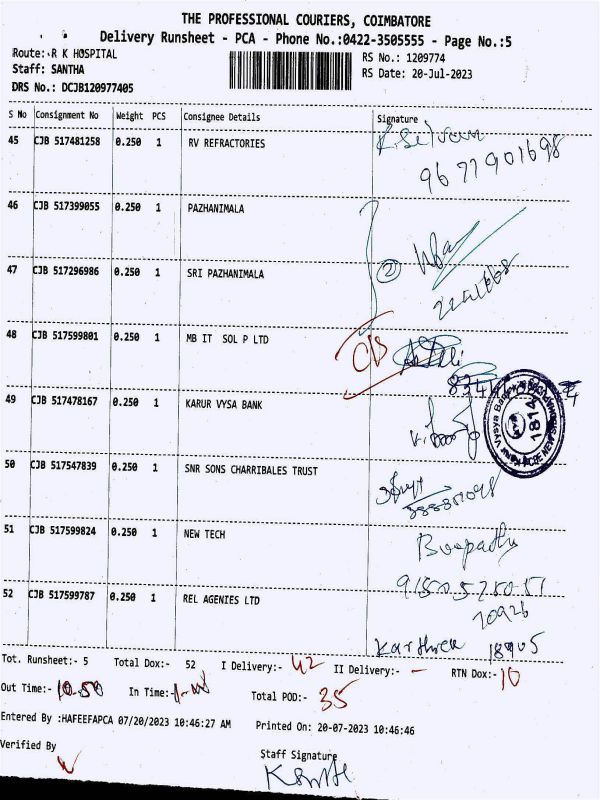 THE PROFESSIONAL COURIERS, COIMBATORE
Delivery Runsheet - PCA - Phone No.:0422-3505555 - Page No.:5
Route: R K HOSPITAL
RS No.: 1209774
Staff: SANTHA
RS Date: 20-Jul-2023
DRS No.: DCJB120977405
S No Consignment No Weight PCS Consignee Details Signature
45 CJB 517481258 0.250 1 RV REFRACTORIES K. Selvam
9677901698
46 CJB 517399055 0.250 1 PAZHANIMALA
47 CJB 517296986 0.250 1 SRI PAZHANIMALA 2
48 CJB 517599801 0.250 1 MB IT SOL P LTD
49 CJB 517478167 0.250 1 KARUR VYSA BANK
1814
50 CJB 517547839 0.250 1 SNR SONS CHARRIBALES TRUST
51 CJB 517599824 0.250 1 NEW TECH Boopathy
52 CJB 517599787 0.250 1 REL AGENIES LTD
70926
Karthick 18905
Tot. Runsheet:- 5 Total Dox:- 52 I Delivery:- 42 II Delivery:- - RTN Dox:- 10
Out Time:- 10.50 In Time:- Total POD:- 35
Entered By :HAFEEFAPCA 07/20/2023 10:46:27 AM Printed On: 20-07-2023 10:46:46
Verified By
Staff Signature